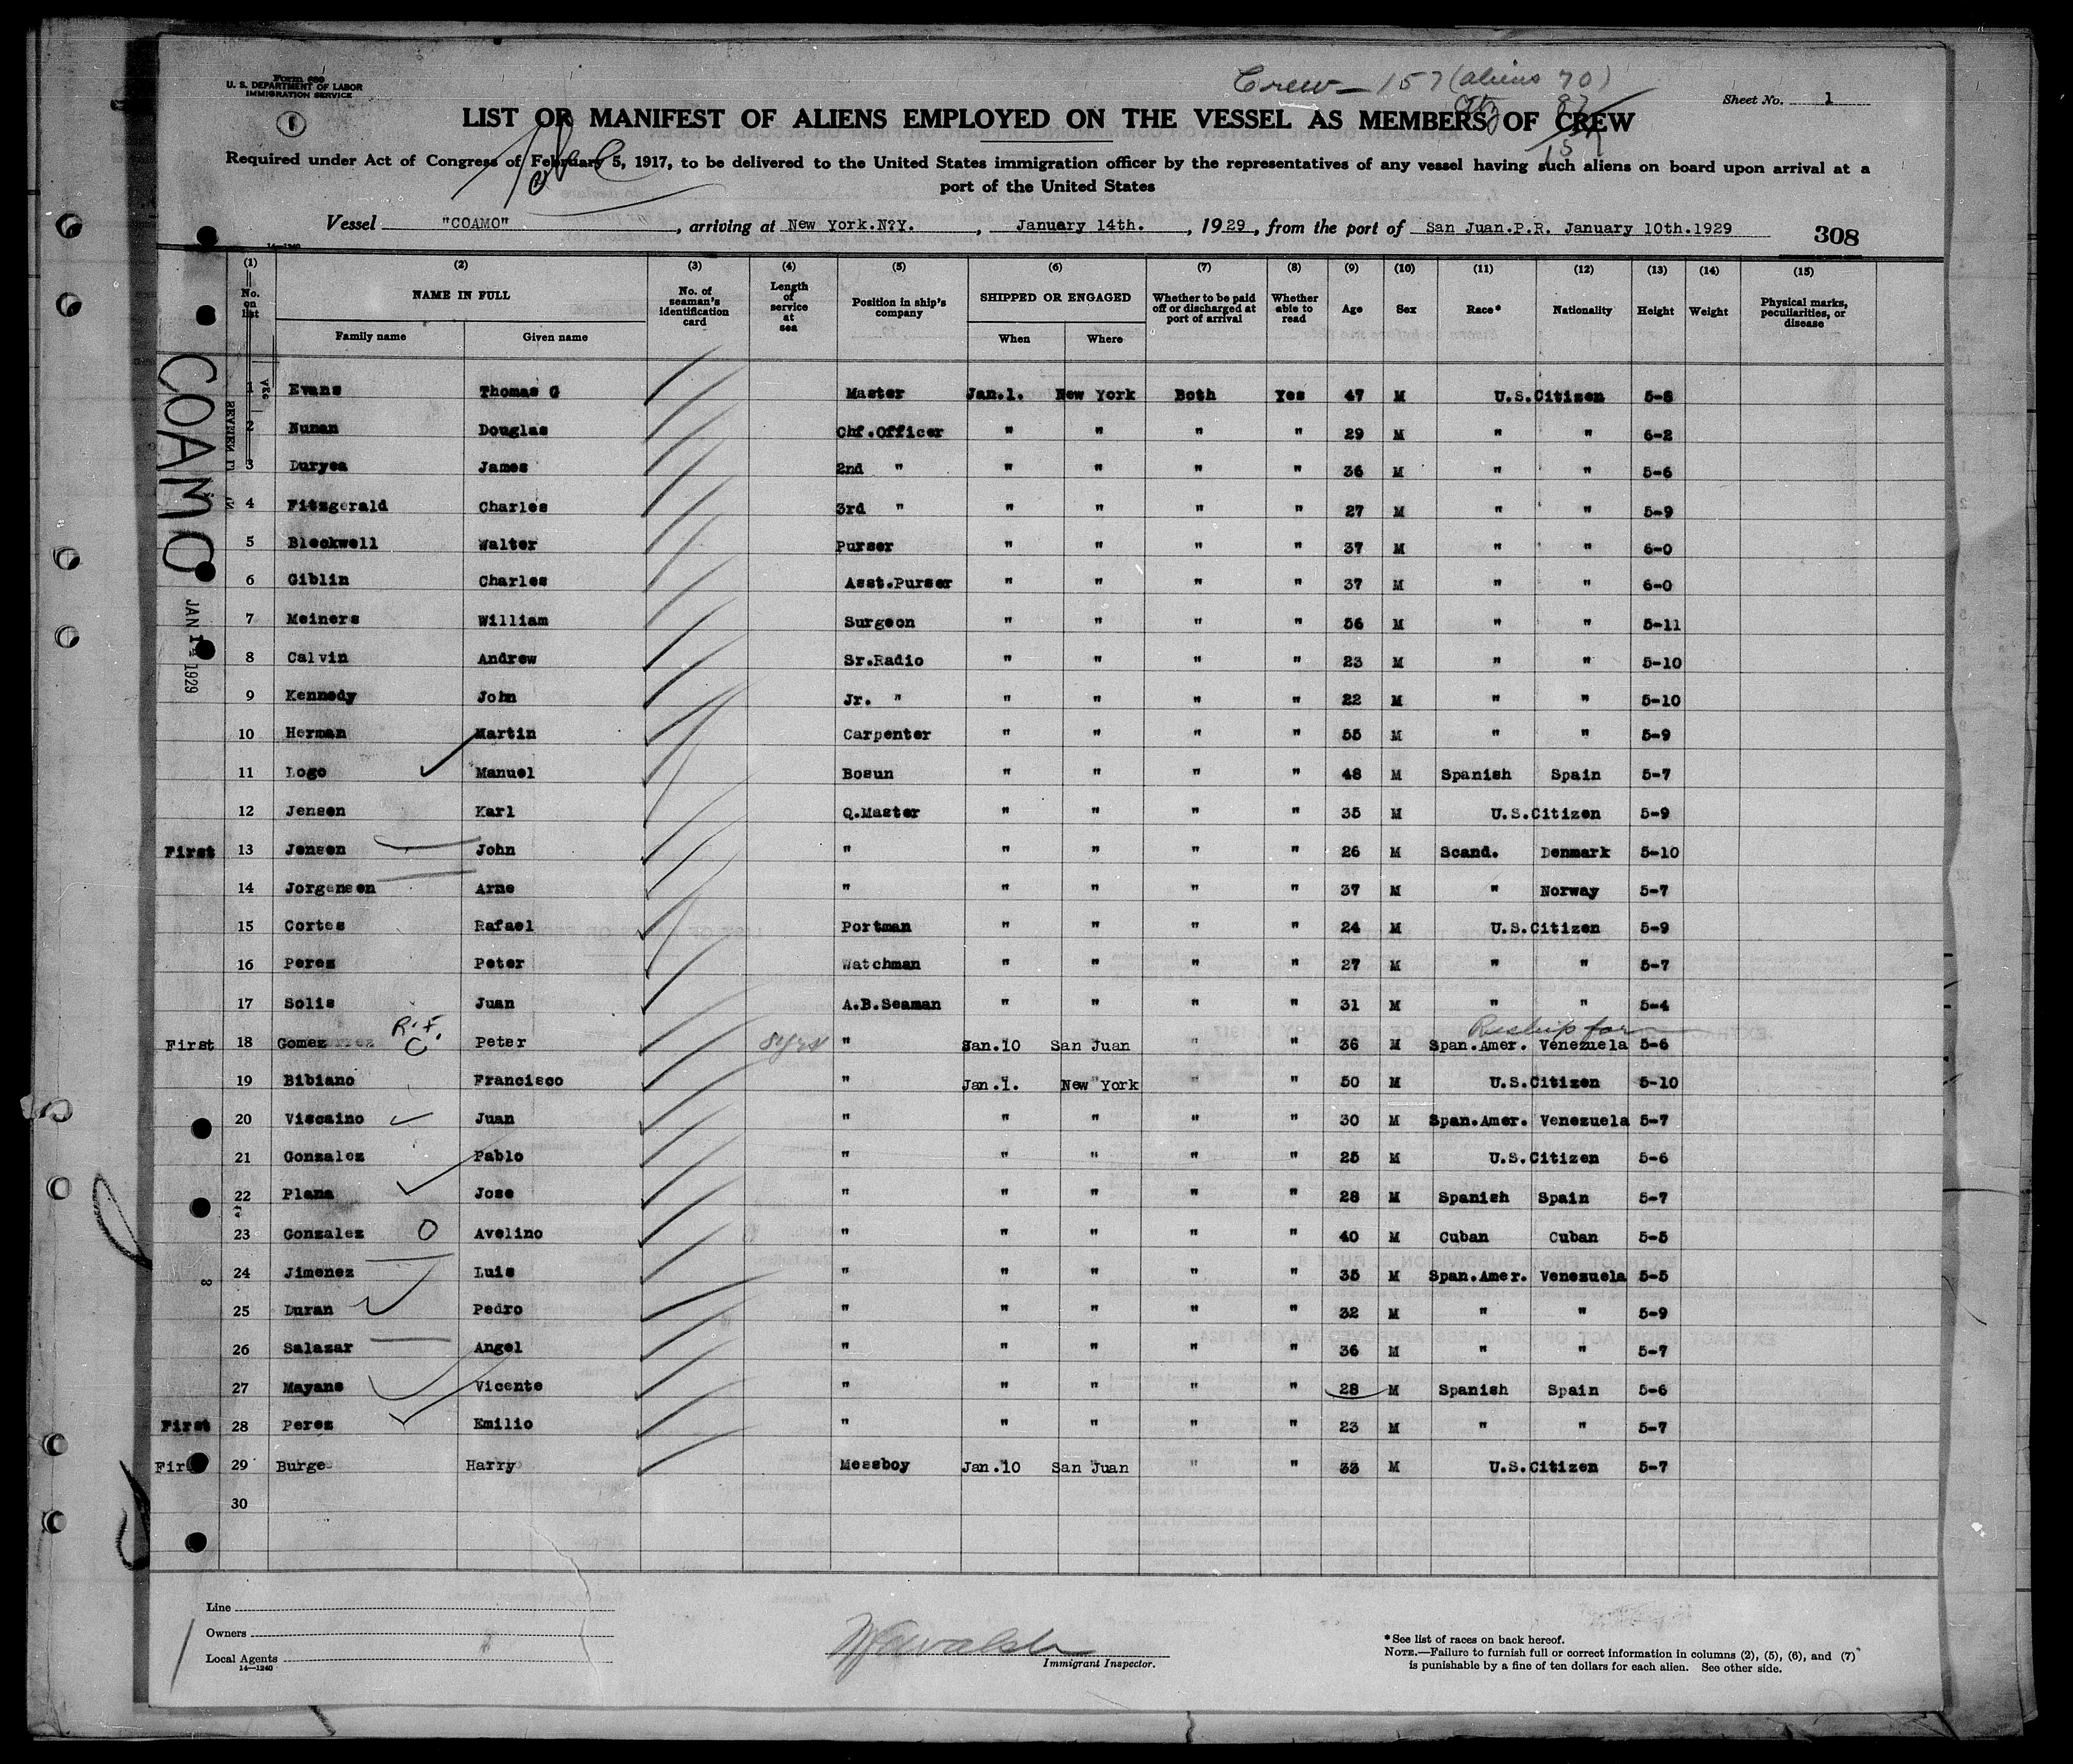 Form 680
U. S. DEPARTMENT OF LABOR
IMMIGRATION SERVICE
Crew - 157 (aliens 70)
87
157
Sheet No. 1
LIST OR MANIFEST OF ALIENS EMPLOYED ON THE VESSEL AS MEMBERS OF CREW
Required under Act of Congress of February 5, 1917, to be delivered to the United States immigration officer by the representatives of any vessel having such aliens on board upon arrival at a
port of the United States
Vessel "COAMO", arriving at New York.N?Y., January 14th., 1929, from the port of San Juan.P.R. January 10th.1929
308
14-1240
(1) (2) (3) (4) (5) (6) (7) (8) (9) (10) (11) (12) (13) (14) (15)
No. on list NAME IN FULL No. of seaman's identification card Length of service at sea Position in ship's company SHIPPED OR ENGAGED Whether to be paid off or discharged at port of arrival Whether able to read Age Sex Race* Nationality Height Weight Physical marks, peculiarities, or disease
Family name Given name When Where
COAMO
JAN 14 1929
1 Evans Thomas G Master Jan.1. New York Both Yes 47 M U.S.Citizen 5-8
2 Nunan Douglas Chf.Officer " " " " 29 M " " 6-2
3 Duryea James 2nd " " " " " 36 M " " 5-6
4 Fitzgerald Charles 3rd " " " " " 27 M " " 5-9
5 Bleckwell Walter Purser " " " " 37 M " " 6-0
6 Giblin Charles Asst.Purser " " " " 37 M " " 6-0
7 Meiners William Surgeon " " " " 56 M " " 5-11
8 Calvin Andrew Sr.Radio " " " " 23 M " " 5-10
9 Kennedy John Jr. " " " " " 22 M " " 5-10
10 Herman Martin Carpenter " " " " 55 M " " 5-9
11 Logo Manuel Bosun " " " " 48 M Spanish Spain 5-7
12 Jensen Karl Q.Master " " " " 35 M U.S.Citizen 5-9
First 13 Jensen John " " " " " 26 M Scand. Denmark 5-10
14 Jorgensen Arne " " " " " 37 M " Norway 5-7
15 Cortes Rafael Portman " " " " 24 M U.S.Citizen 5-9
16 Perez Peter Watchman " " " " 27 M " " 5-7
17 Solis Juan A.B.Seaman " " " " 31 M " " 5-4
R.F. Reship for
First 18 Gomez C Peter 8yrs " Jan.10 San Juan " " 36 M Span.Amer. Venezuela 5-6
19 Bibiano Francisco " Jan.1. New York " " 50 M U.S.Citizen 5-10
20 Viscaino Juan " " " " " 30 M Span.Amer. Venezuela 5-7
21 Gonzalez Pablo " " " " " 25 M U.S.Citizen 5-6
22 Plana Jose " " " " " 28 M Spanish Spain 5-7
23 Gonzalez O Avelino " " " " " 40 M Cuban Cuban 5-5
24 Jimenez Luis " " " " " 35 M Span.Amer. Venezuela 5-5
25 Duran Pedro " " " " " 32 M " " 5-9
26 Salazar Angel " " " " " 36 M " " 5-7
27 Mayans Vicente " " " " " 28 M Spanish Spain 5-6
First 28 Perez Emilio " " " " " 23 M " " 5-7
First 29 Burge Harry Messboy Jan.10 San Juan " " 33 M U.S.Citizen 5-7
30
Line
Owners
Local Agents
14-1240
Immigrant Inspector.
*See list of races on back hereof.
NOTE.—Failure to furnish full or correct information in columns (2), (5), (6), and (7)
is punishable by a fine of ten dollars for each alien. See other side.